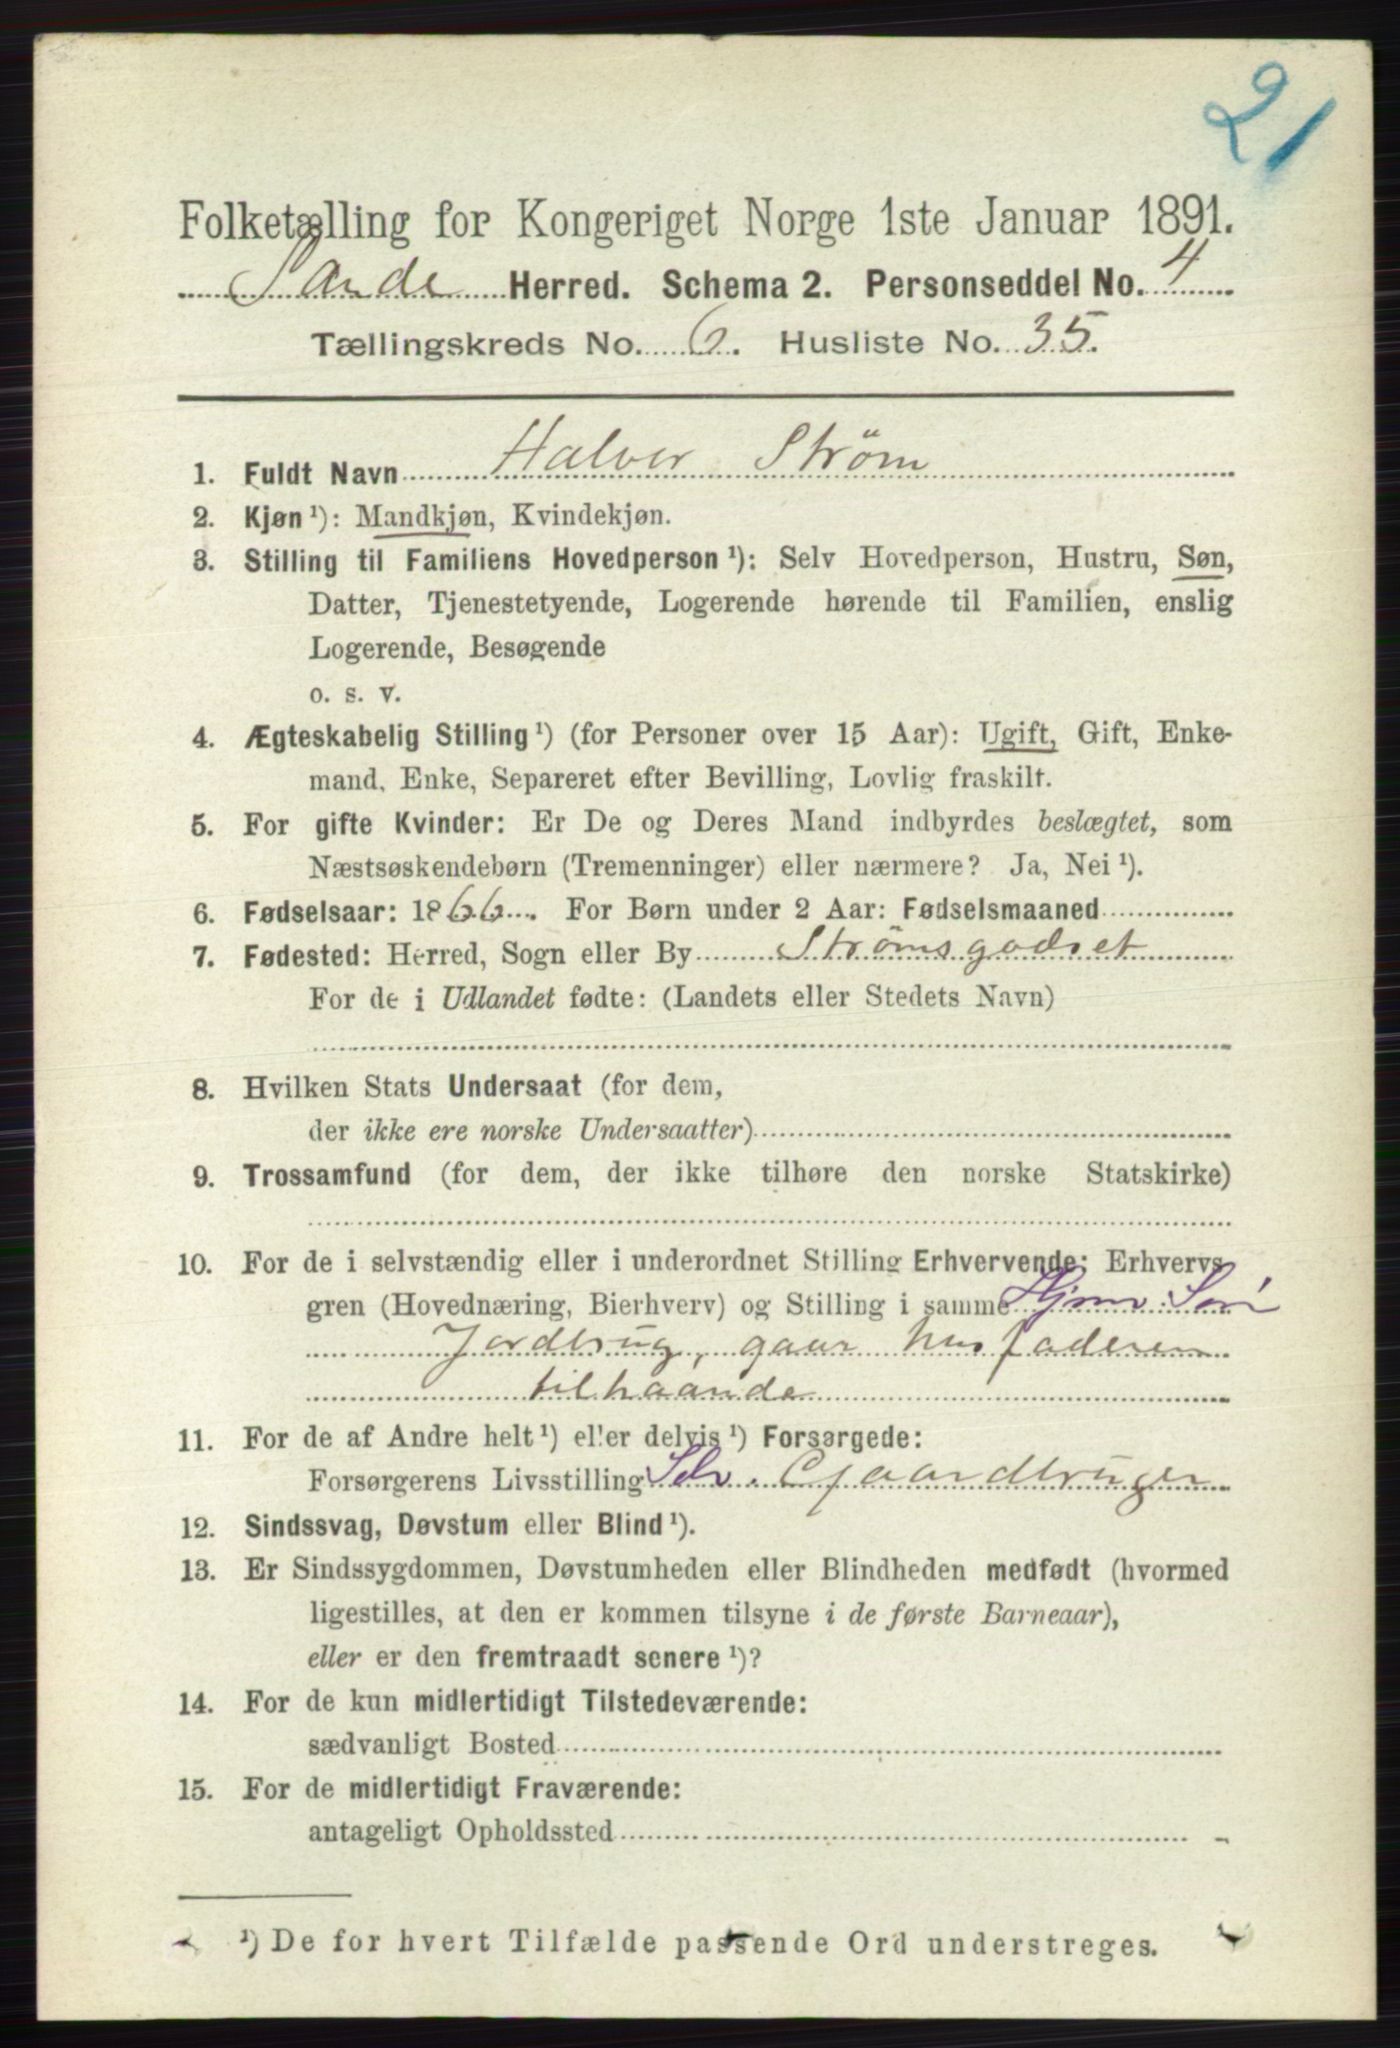 21
Folketælling for Kongeriget Norge 1ste Januar 1891.
Sande Herred. Schema 2. Personseddel No. 4
Tællingskreds No. 6. Husliste No. 35.
1. Fuldt Navn Halver Strøm
2. Kjøn ¹): Mandkjøn, Kvindekjøn.
3. Stilling til Familiens Hovedperson ¹): Selv Hovedperson, Hustru, Søn,
Datter, Tjenestetyende, Logerende hørende til Familien, enslig
Logerende, Besøgende
o. s. v.
4. Ægteskabelig Stilling ¹) (for Personer over 15 Aar): Ugift, Gift, Enke-
mand, Enke, Separeret efter Bevilling, Lovlig fraskilt.
5. For gifte Kvinder: Er De og Deres Mand indbyrdes beslægtet, som
Næstsøskendebørn (Tremenninger) eller nærmere? Ja, Nei ¹).
6. Fødselsaar: 1866. For Børn under 2 Aar: Fødselsmaaned
7. Fødested: Herred, Sogn eller By Strømsgodset
For de i Udlandet fødte: (Landets eller Stedets Navn)
8. Hvilken Stats Undersaat (for dem,
der ikke ere norske Undersaatter)
9. Trossamfund (for dem, der ikke tilhøre den norske Statskirke)
10. For de i selvstændig eller i underordnet Stilling Erhvervende: Erhvervs-
gren (Hovednæring, Bierhverv) og Stilling i samme
Jordbrug, gaar hus faderen
tilhaande
11. For de af Andre helt ¹) eller delvis ¹) Forsørgede:
Forsørgerens Livsstilling Selv. Gaardbruger
12. Sindssvag, Døvstum eller Blind ¹).
13. Er Sindssygdommen, Døvstumheden eller Blindheden medfødt (hvormed
ligestilles, at den er kommen tilsyne i de første Barneaar),
eller er den fremtraadt senere ¹)?
14. For de kun midlertidigt Tilstedeværende:
sædvanligt Bosted
15. For de midlertidigt Fraværende:
antageligt Opholdssted
¹) De for hvert Tilfælde passende Ord understreges.